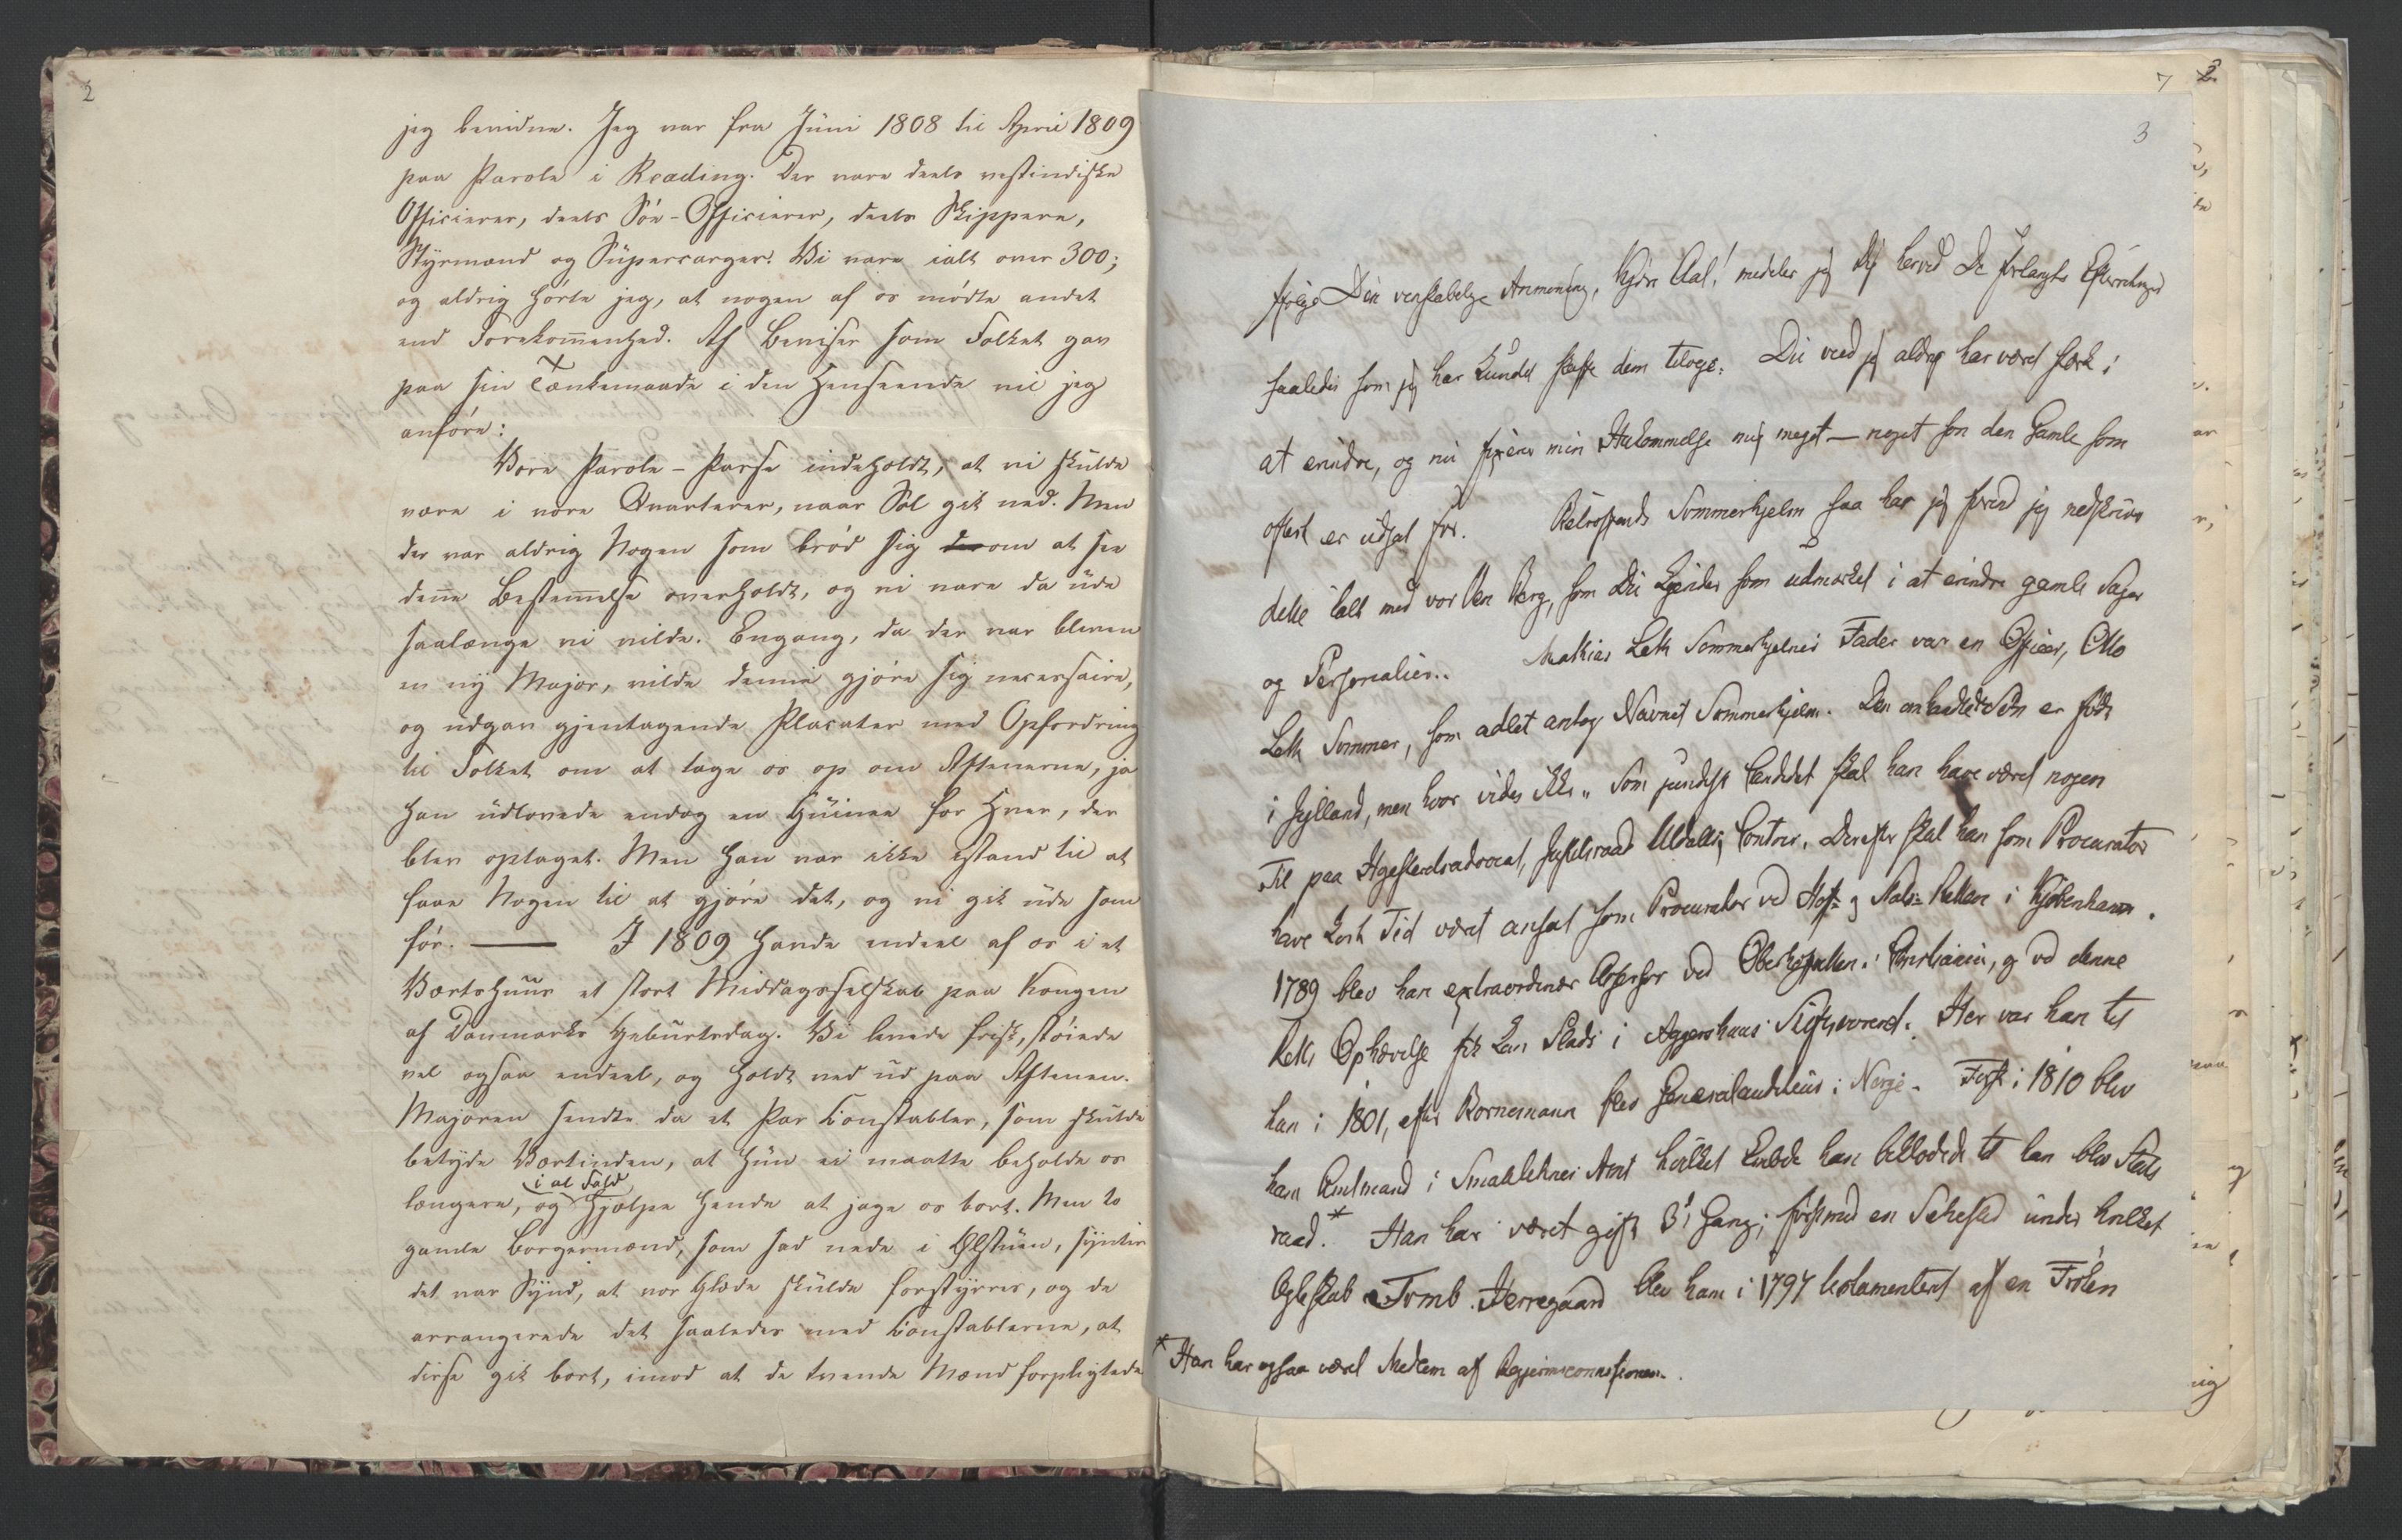 2
jeg bevidne. Jeg var fra Juni 1808 til April 1809
paa Parole i Reading. Der vare deels vestindiske
Officierer, deels Söe-Officierer, deels Skippere,
Styrmænd og Supercarger. Vi vare ialt over 300;
og aldrig hörte jeg, at nogen af os mödte andet
end Forekommenhed. Af Beviser som Folket gav
paa sin Tænkemaade i den Henseende vil jeg
anföre:
Vore Parole-Passe indeholdt, at vi skulde
være i vore Qvarterer, naar Sol gik ned. Men
der var aldrig Nogen som bröd sig om at see
denne Bestemmelse overholdt, og vi vare da ude
saalænge vi vilde. Engang, da der var bleven
en ny Major, vilde denne gjöre sig necessaire,
og udgav gjentagende Placater med Opfordring
til Folket om at tage os op om Aftenerne, ja
han udlovede endog en Guinee for Hver, der
blev optaget. Men han var ikke istand til at
faae Nogen til at gjöre det, og vi gik ude som
för. — I 1809 havde endeel af os i et
Vertshuus et stort Middagsselskab paa Kongen
af Danmarks Geburtsdag. Vi levede frisk, støiede
vel ogsaa endeel, og holdt ved ud paa Aftenen.
Majoren sendte da et Par Constabler, som skulde
betyde Værtinden, at hun ei maatte beholde os
i al Fald
længere, og hjælpe hende at jage os bort. Men to
gamle Borgermænd, som sad nede i Ölstuen, syntes
det var Synd, at vor Glæde skulde forstyrres, og de
arrangerede det saaledes med Constablerne, at
disse gik bort, imod at de tvende Mænd forpligtede
7 2
3
følge Din venskabelige Anmoning, Kjære Aal! meddeler jeg Dig herved De forlangte Efterretninger
saaledes som jeg har kundet skaffe dem tilveie. Du veed jeg aldrig har været stærk i
at erindre, og nu fixerer min Hukommelse mig meget — noget som den Gamle som
oftest er udsat for. Betræffende Sommerhjelm saa har jeg förend jeg nedskrev
dette talt med vor Ven Berg, som Du kjender som udmærket i at erindre gamle Sager
og Personalier. Mathias Leth Sommerhjelms Fader var en Officer, Otto
Leth Sommer, som adlet antog Navnet Sommerhjelm. Den omhandlede Sön er född
i Jylland, men hvor vides ikke. Som juridisk Candidat skal han have været nogen
Tid paa Höjesteretsadvocat, Justitsraad Uldalls Contoir. Derefter skal han som Procurator
have kort Tid været ansat som Procurator ved Hof- og Stads-Retten i Kjöbenhavn.
1789 blev han extraordinær Assessor ved Oberhofretten i Christiania, og ved denne
Retts Ophævelse fik han Plads i Aggershuus Stiftsoverret. Her var han til
han i 1801, efter Bornemann blev Generalauditeur i Norge. Först i 1810 blev
han Amtmand i Smaalehnenes Amt hvilket Embede han beklædede til han blev Stats
raad.* Han har været gift 3 Gang; först med en Sehested under hvilket
Ægteskab Tomb Herregaard blev ham i 1797 testamenteret af en Fröken
* Han har ogsaa været Medlem af Regjeringscommissionen.